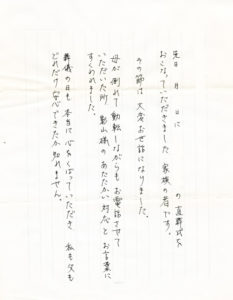 先日 月 日に の直葬式を
おこなっていただきました 家族の者です。
その節は大変お世話になりました。
母が倒れて動転しながらもお電話させて
いただいた所 影山様のあたたかい対応と お言葉に
すくわれました。
葬儀の日も本当に心をくばっていただき 私も父も
どれだけ安心できたか知れません。